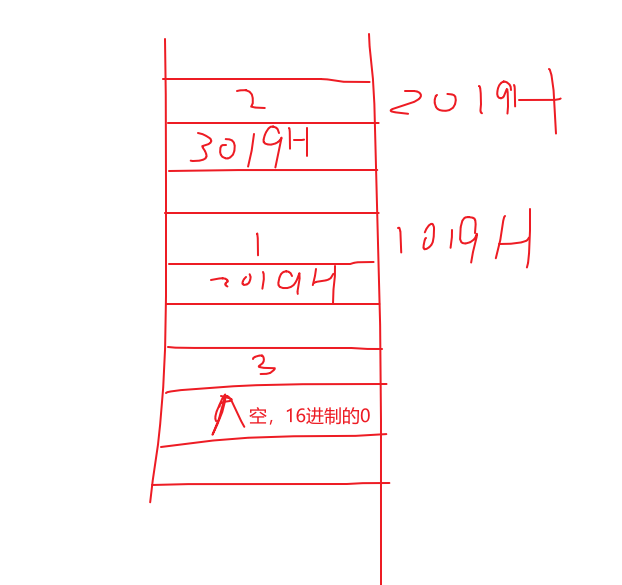 2 2019H
3019H
1 1019H
2019H
3
空，16进制的0